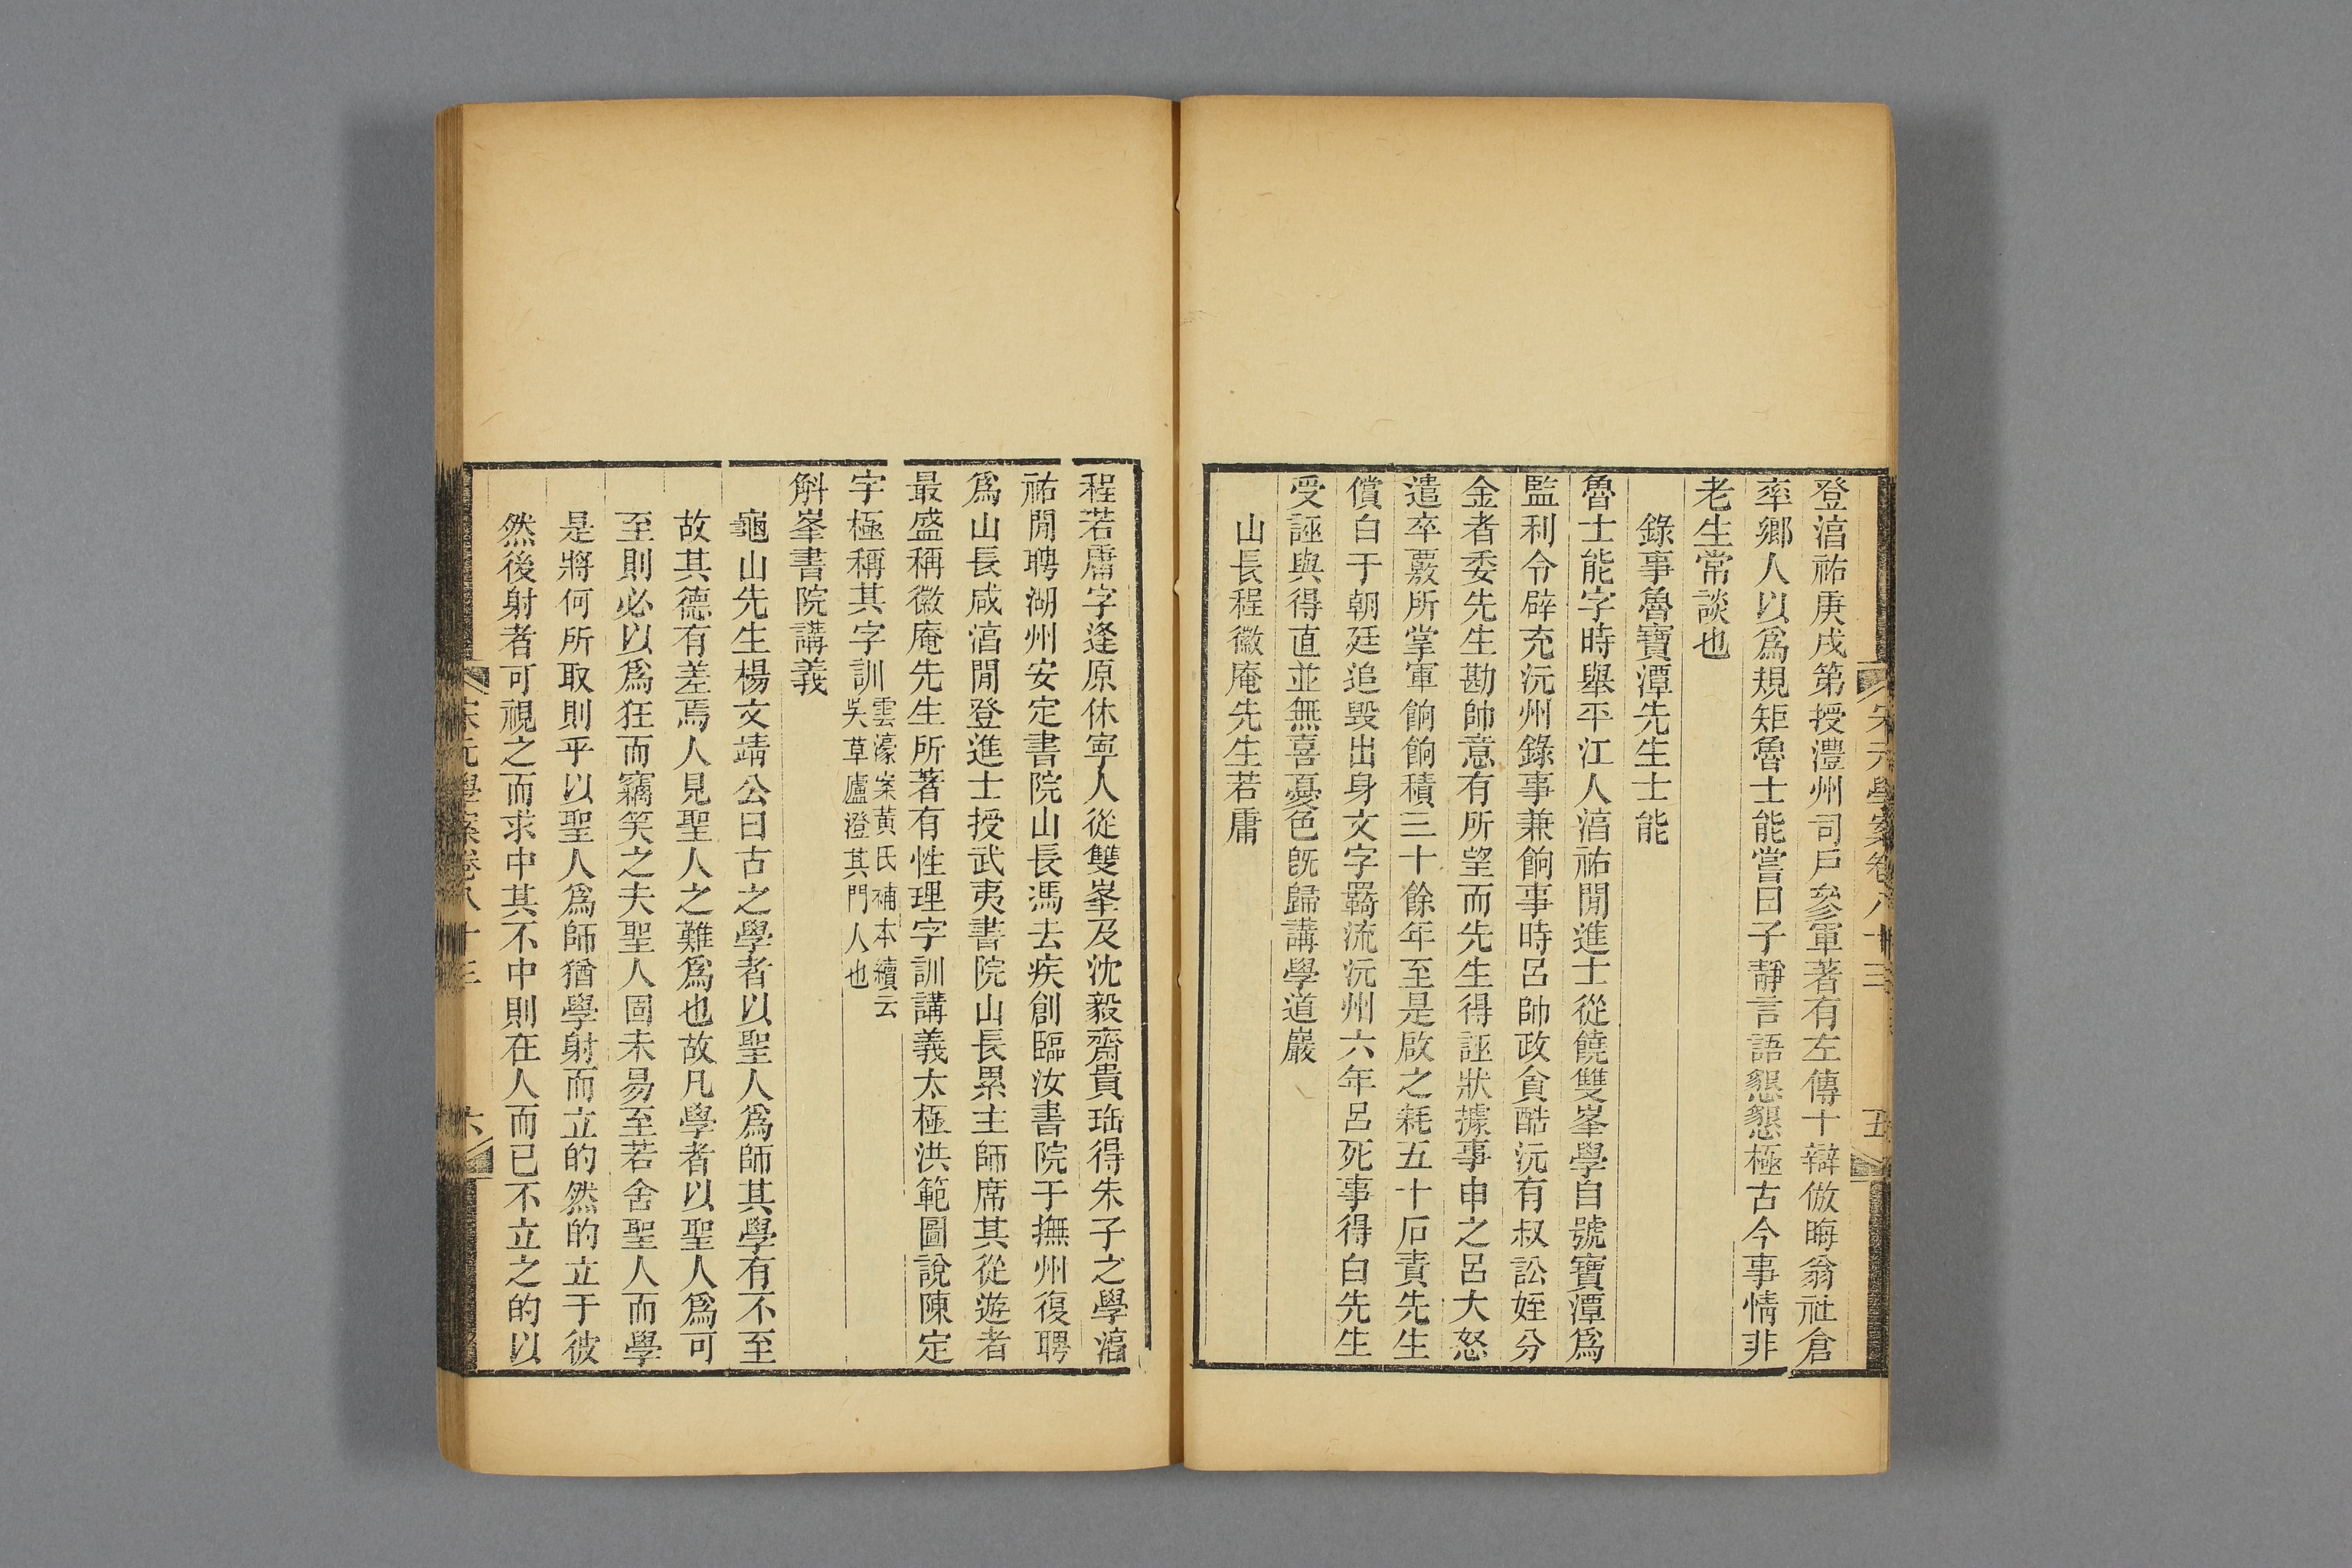 宋元學案卷八十三 五
登湻祐庚戌第授澧州司戶參軍著有左傳十辯倣晦翁社倉
率鄉人以爲規矩魯士能嘗曰子靜言語懇懇極古今事情非
老生常談也
錄事魯寶潭先生士能
魯士能字時舉平江人湻祐閒進士從饒雙峯學自號寶潭爲
監利令辟充沅州錄事兼餉事時呂帥政貪酷沅有叔訟姪分
金者委先生勘帥意有所望而先生得誣狀據事申之呂大怒
遣卒覈所掌軍餉餉積三十餘年至是啟之耗五十石責先生
償白于朝廷追毀出身文字羇流沅州六年呂死事得白先生
受誣與得直並無喜憂色旣歸講學道巖
山長程徽庵先生若庸
程若庸字逢原休寧人從雙峯及沈毅齋貴珤得朱子之學湻
祐閒聘湖州安定書院山長馮去疾創臨汝書院于撫州復聘
爲山長咸湻閒登進士授武夷書院山長累主師席其從遊者
最盛稱徽庵先生所著有性理字訓講義太極洪範圖說陳定
宇極稱其字訓雲濠案黃氏補本續云
吳草廬澄其門人也
斛峯書院講義
龜山先生楊文靖公曰古之學者以聖人爲師其學有不至
故其德有差焉人見聖人之難爲也故凡學者以聖人爲可
至則必以爲狂而竊笑之夫聖人固未易至若舍聖人而學
是將何所取則乎以聖人爲師猶學射而立的然的立于彼
然後射者可視之而求中其不中則在人而已不立之的以
宋元學案卷八十三 六